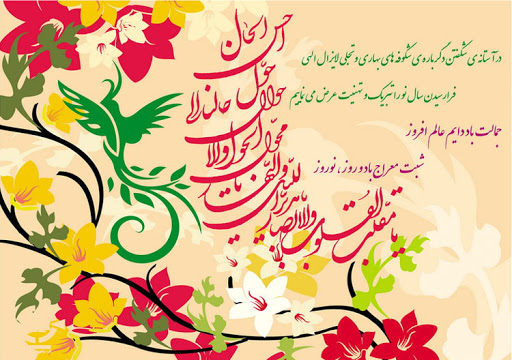 درآستانه‌ی شکفتن دگرباره‌ی شکوفه‌های بهاری و تجلی لایزال الهی
فرارسیدن سال نو را تبریک و تهنیت عرض می نماییم
جمالت باد دایم عالم افروز
شبت معراج باد و روز، نوروز
یا مقلب القلوب والابصار
یا مدبر اللیل و النهار
یا محول الحول والاحوال
حول حالنا الی
احسن الحال